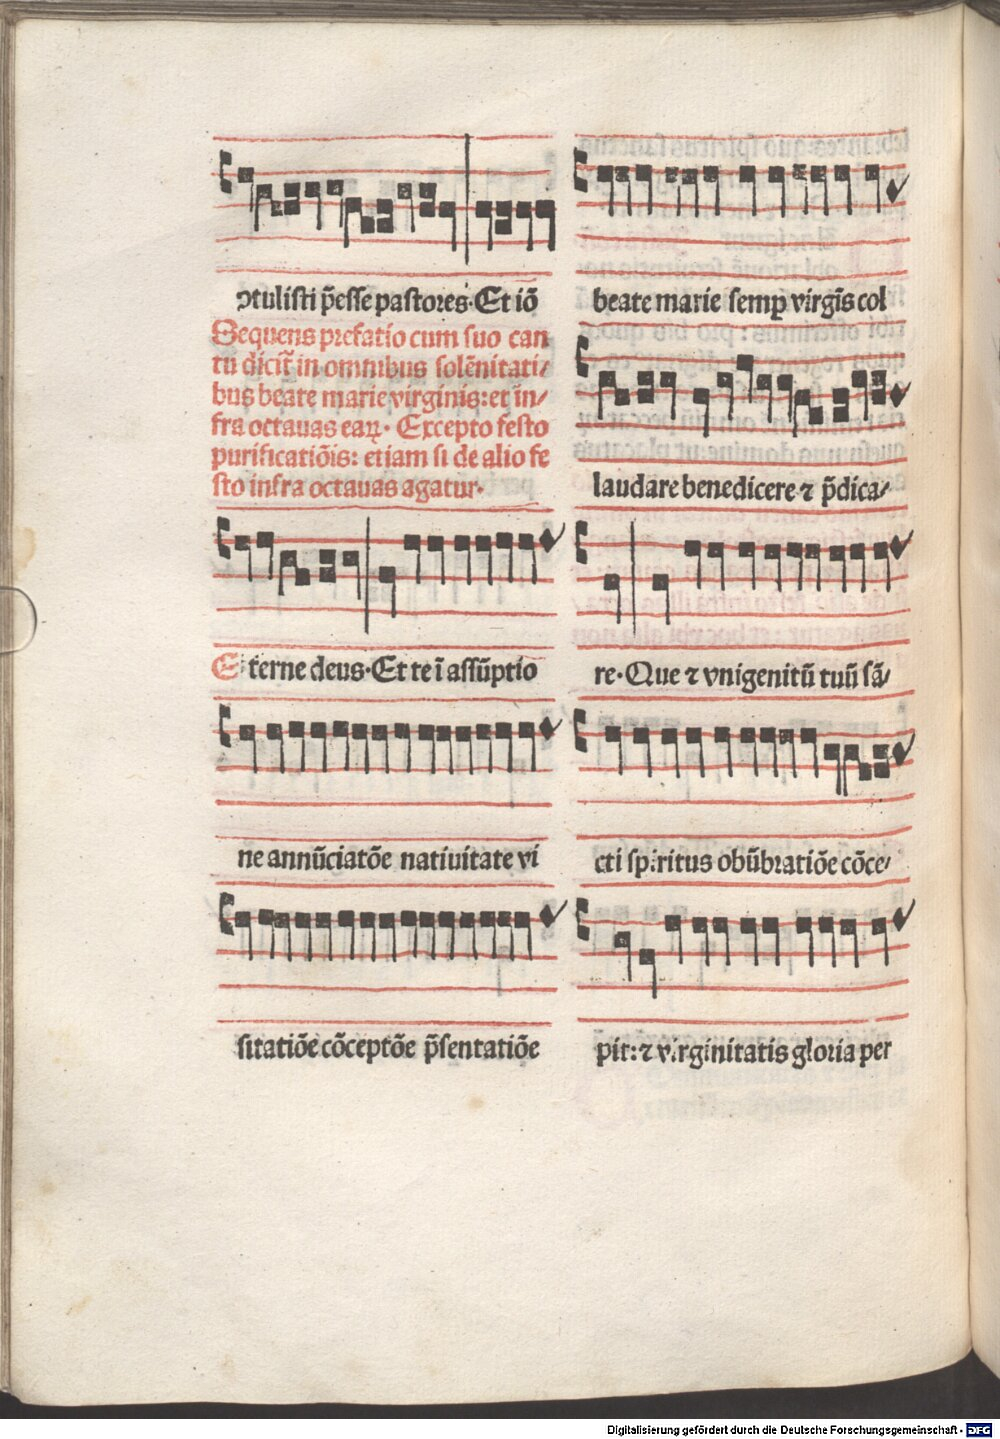 ↄtulisti p̃esse pastores·Et iõ
Sequens prefatio cum suo can
tu dicit̃ in omnibus solẽnitati/
bus beate marie virginis:et in/
fra octauas eaꝝ· Excepto festo
purificatiõis: etiam si de alio fe
sto infra octauas agatur·
Eterne deus·Et te ĩ assũptio
ne annũciatõe natiuitate vi
sitatiõe cõceptõe p̃sentatiõe
beate marie semꝑ virgĩs col
laudare benedicere ⁊ p̃dica/
re·Que ⁊ vnigenitũ tuũ sã/
cti spiritus obũbratiõe cõce/
pit:⁊ virginitatis gloria per
Digitalisierung gefördert durch die Deutsche Forschungsgemeinschaft - DFG